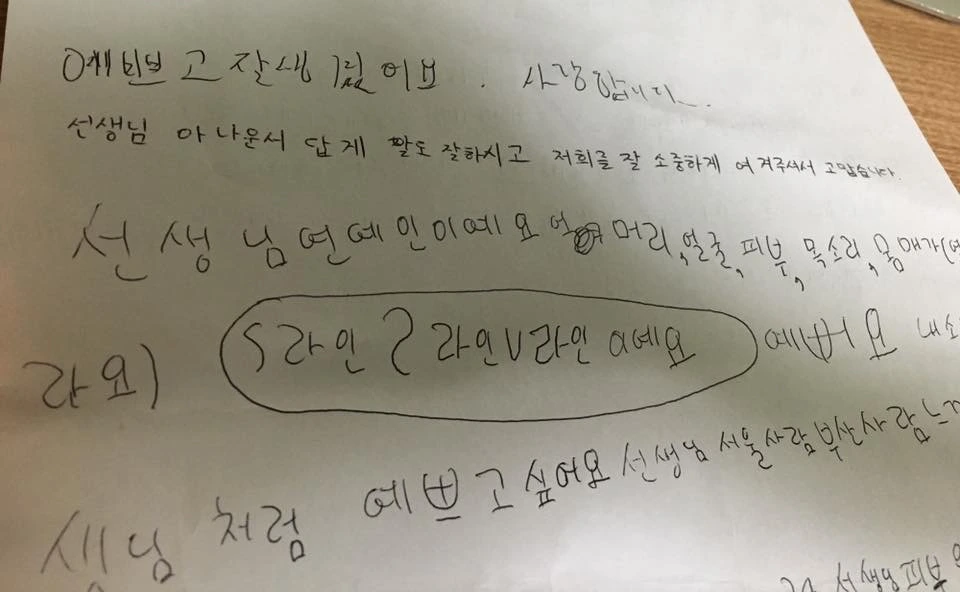 예쁘고 잘생김이브. 사랑합니다...
선생님 아나운서 답게 말도 잘하시고 저희를 잘 소중하게 여겨주셔서 고맙습니다.
선생님 연예인이예요 머리, 얼굴, 피부, 목소리, 몸매가(
라요) S라인 2라인 V라인 이예요 예뻐요
생님 처럼 예쁘고 싶어요 선생님 서울사람 부산사람
선생님 피부